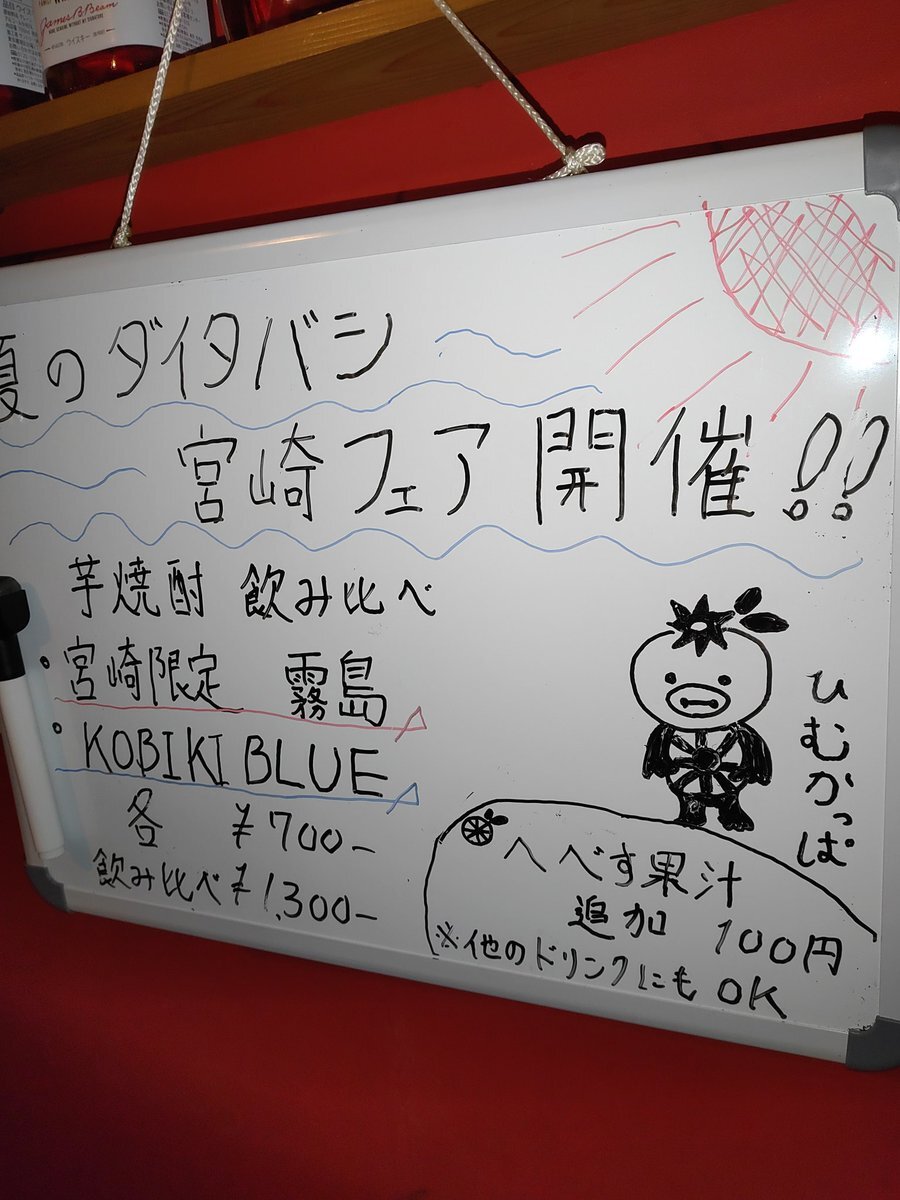 James B. Beam
ウイスキー
夏のダイタバシ
宮崎フェア開催!!
芋焼酎 飲み比べ
・宮崎限定 霧島
・KOBIKI BLUE
各 ¥700-
飲み比べ¥1,300-
ひむかっぱ
へべす果汁
追加 100円
※他のドリンクにも OK